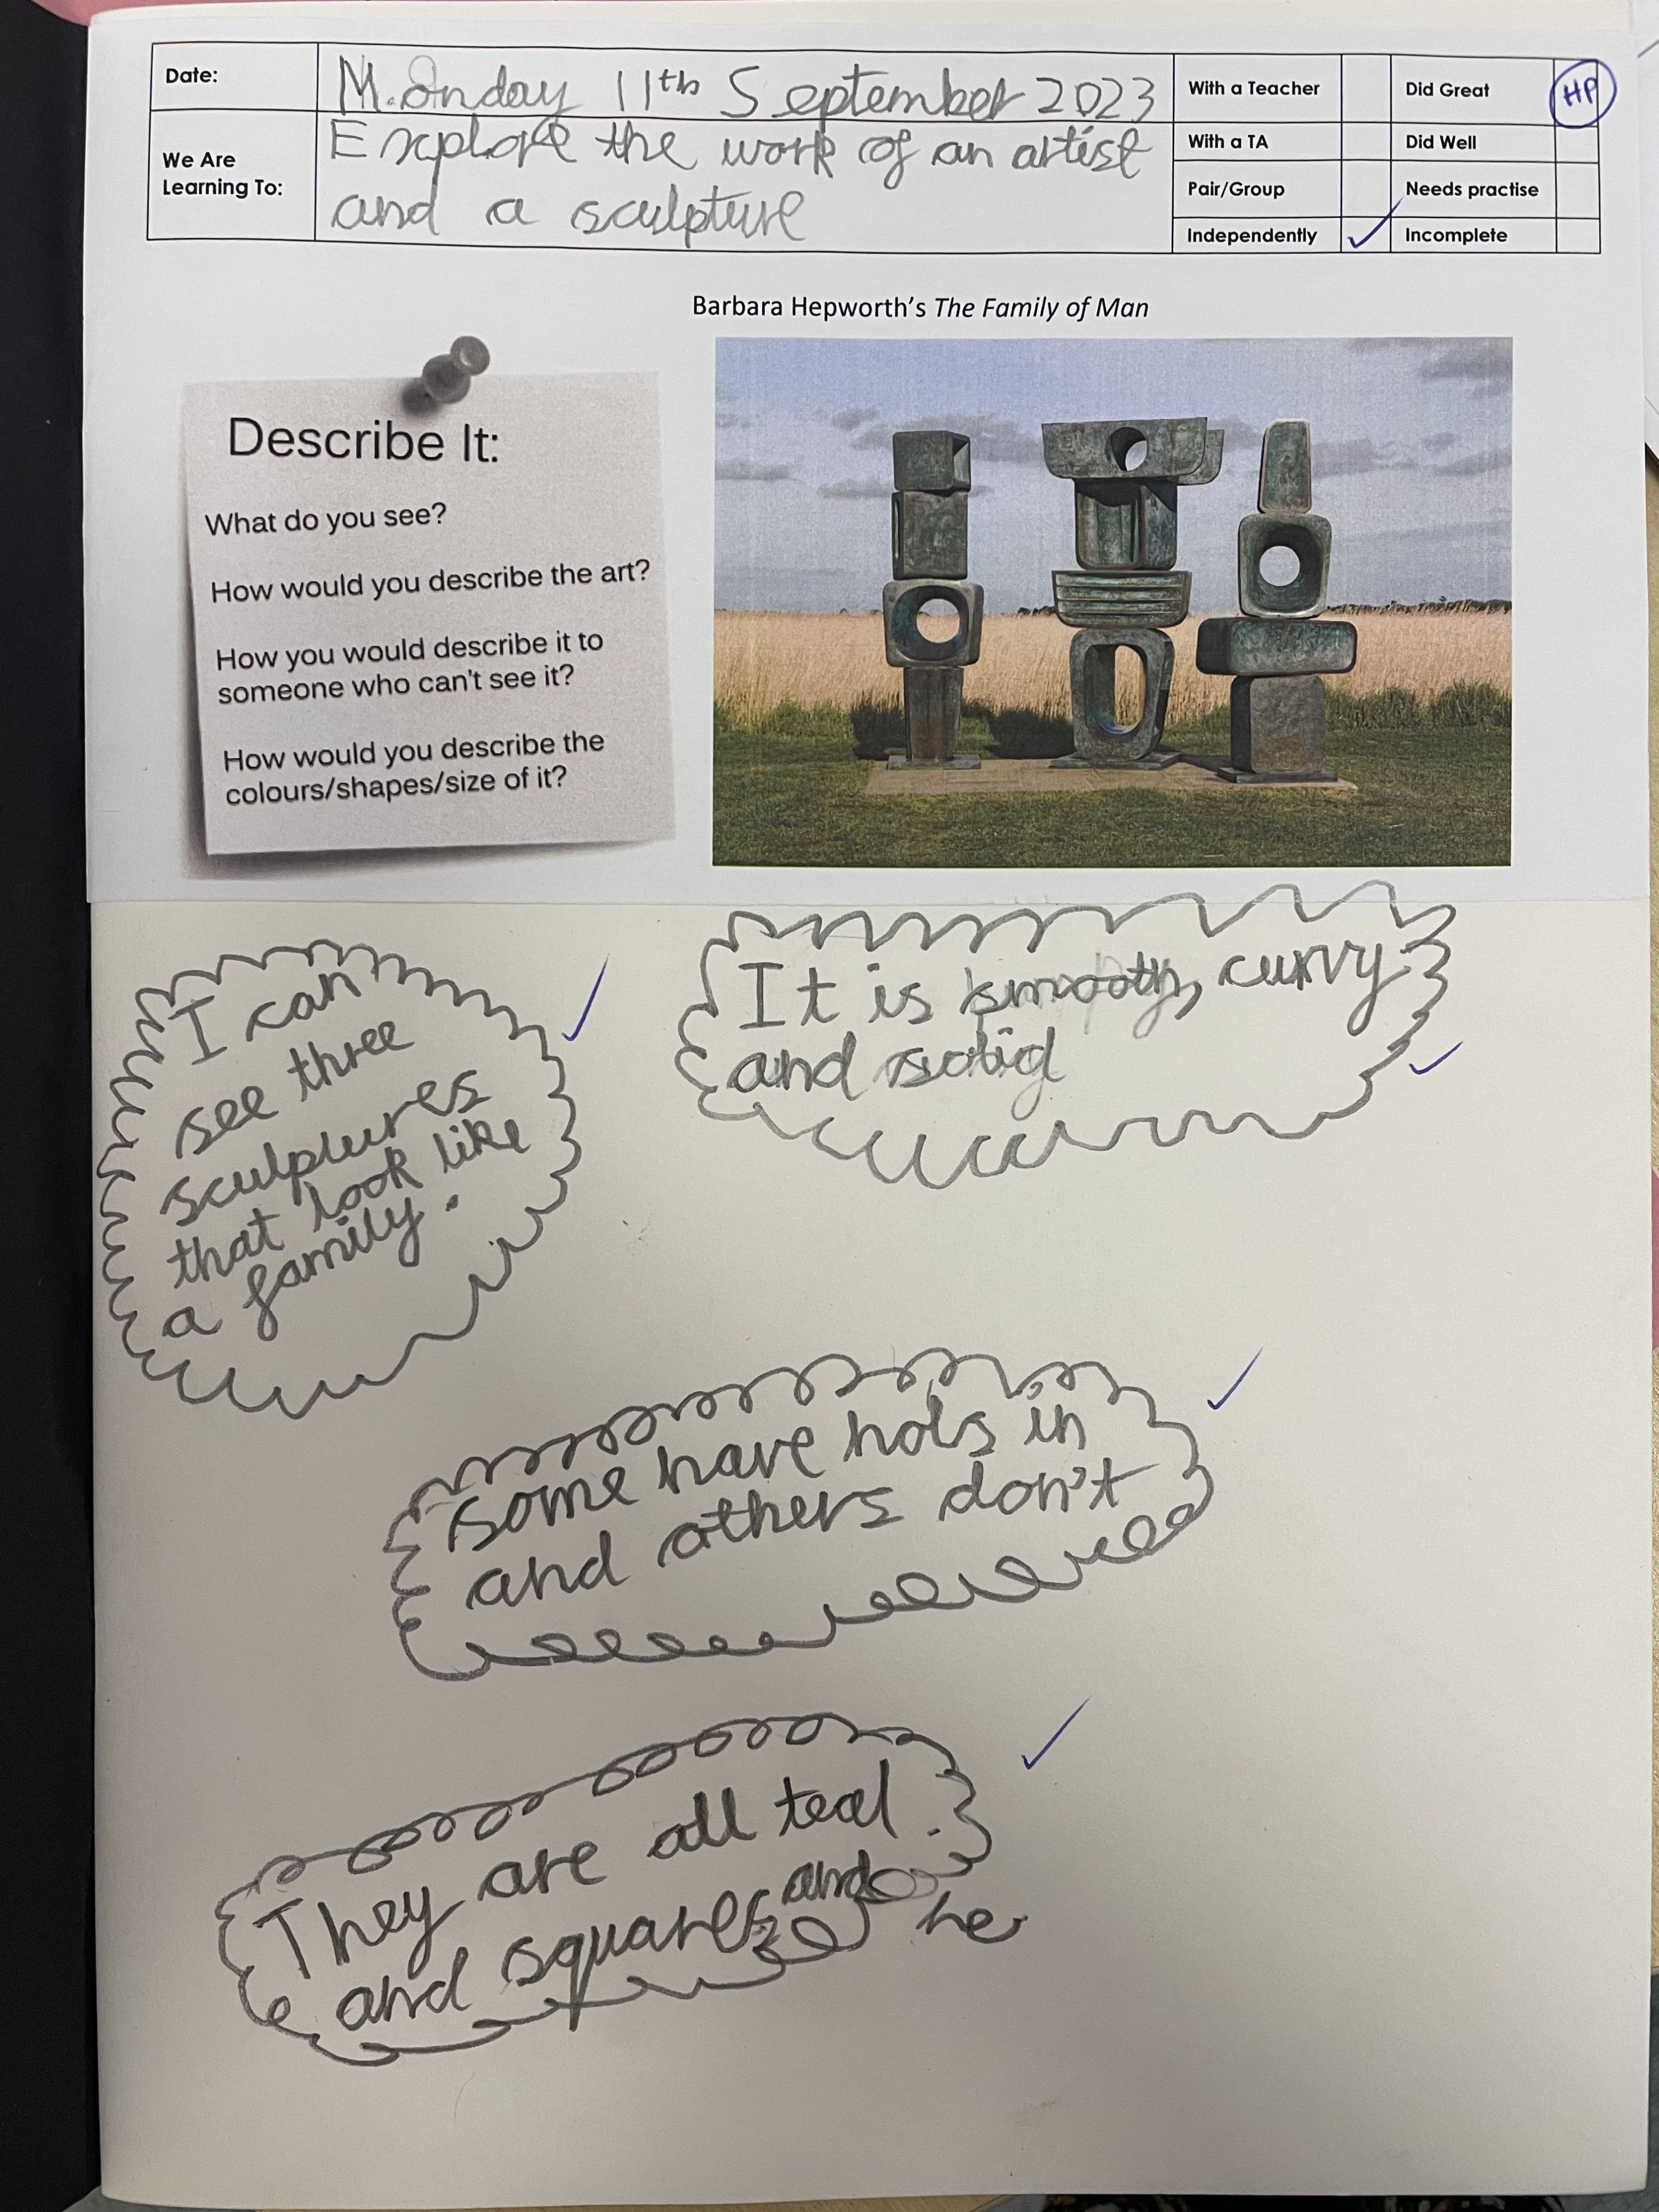 Date:
Monday 11th September 2023
We Are
Learning To:
Explore the work of an artist
and a sculpture
With a Teacher
Did Great
HP
With a TA
Did Well
Pair/Group
Needs practise
Independently
Incomplete
Barbara Hepworth's The Family of Man
Describe It:
What do you see?
How would you describe the art?
How you would describe it to
someone who can't see it?
How would you describe the
colours/shapes/size of it?
I can
see three
sculptures
that look like
a family.
It is smooth, curvy
and solid
some have hols in
and others don't
They are all teal.
and squares and
he